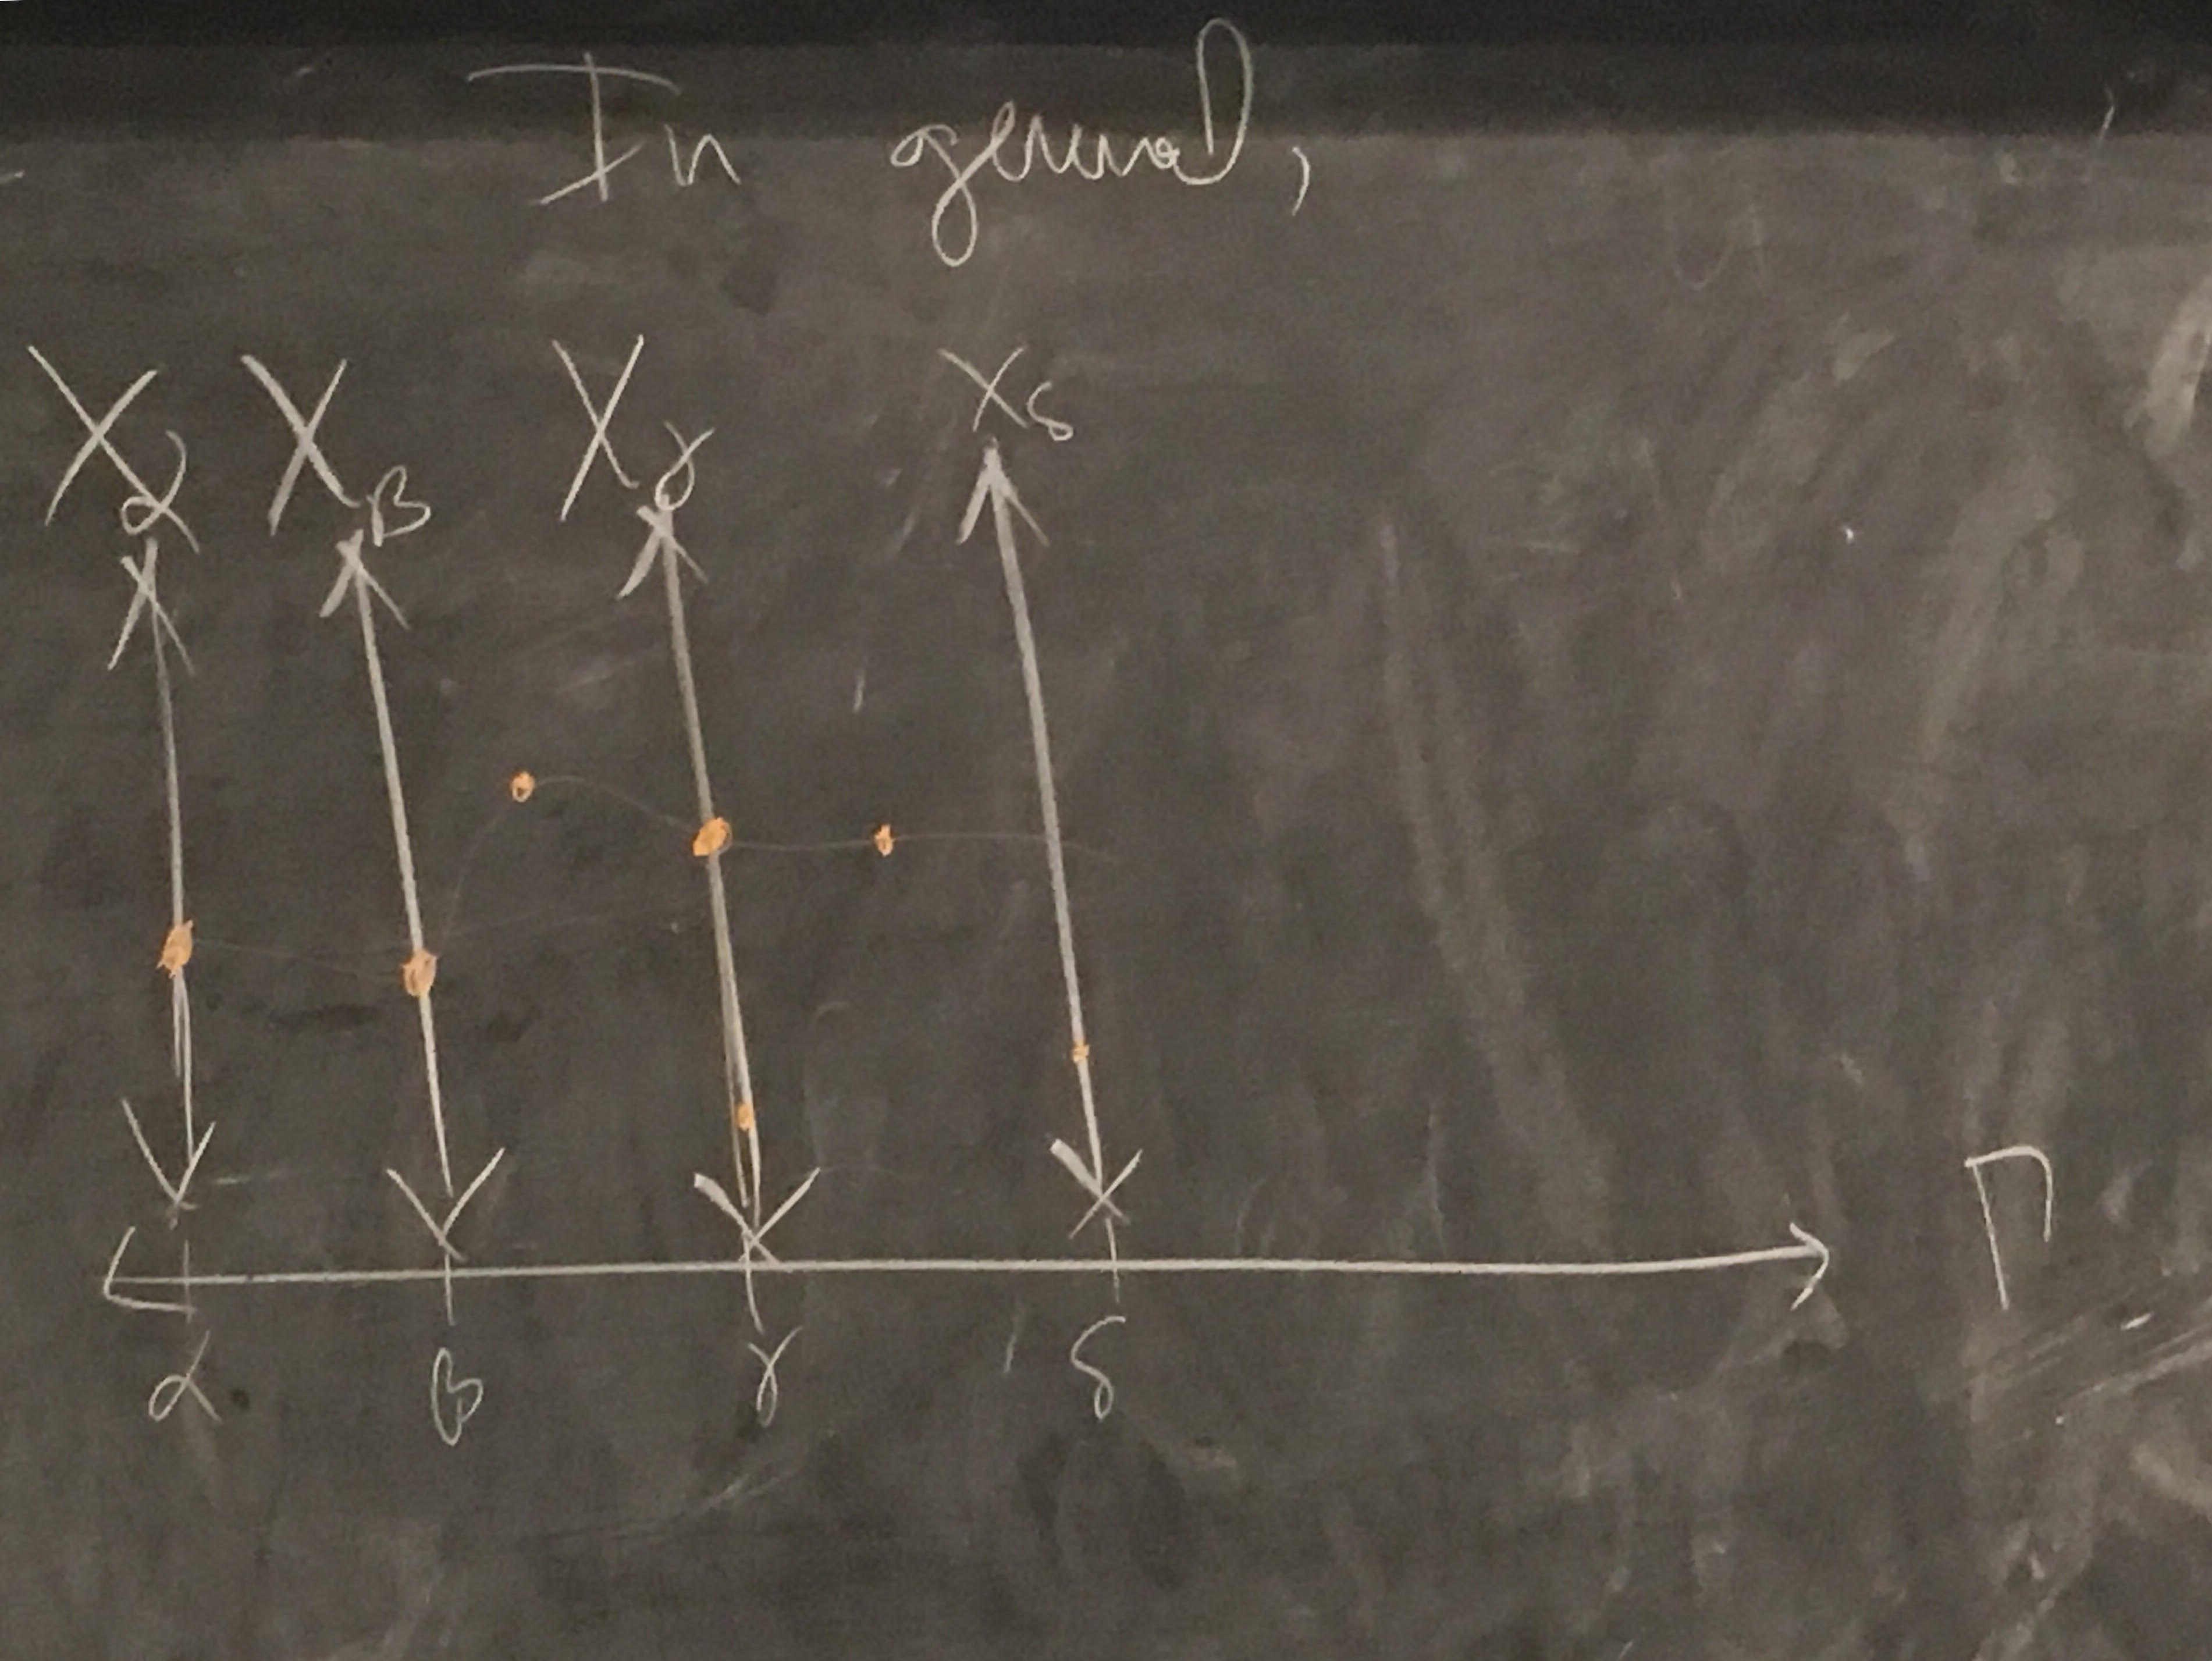 In general,
X_α X_β X_γ X_δ
Γ
α β γ δ